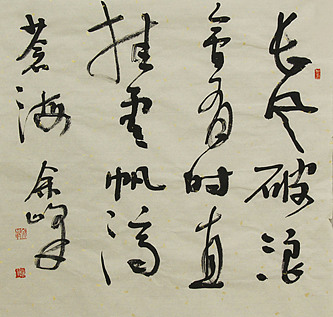 长风破浪
会有时直
挂云帆济
苍海
余峰